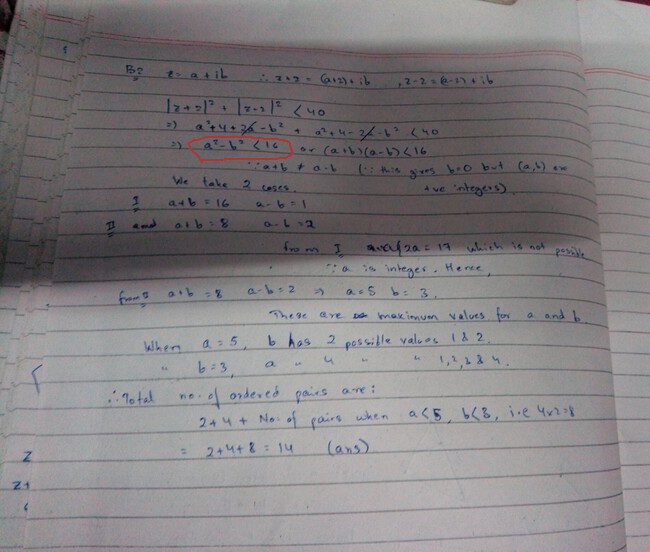 B2 z = a + ib ∴ z+2 = (a+2)+ib , z-2 = (a-2)+ib
|z+2|² + |z-2|² < 40
⇒ a²+4+2a-b² + a²+4-2a-b² < 40
⇒ a²-b² < 16 or (a+b)(a-b) < 16
∵ a+b ≠ a-b (∵ this gives b=0 but (a,b) are
+ve integers)
We take 2 cases.
I a+b = 16 a-b = 1
II and a+b = 8 a-b = 2
from I 2a = 17 which is not possible
∵ a is integer. Hence,
from II a+b = 8 a-b = 2 ⇒ a=5 b=3.
These are maximum values for a and b.
When a=5, b has 2 possible values 1 & 2.
" b=3, a " 4 " " 1,2,3 & 4.
∴ Total no. of ordered pairs are:
2+4 + No. of pairs when a<5, b<3, i.e 4×2=8
= 2+4+8 = 14 (ans)
z
z+